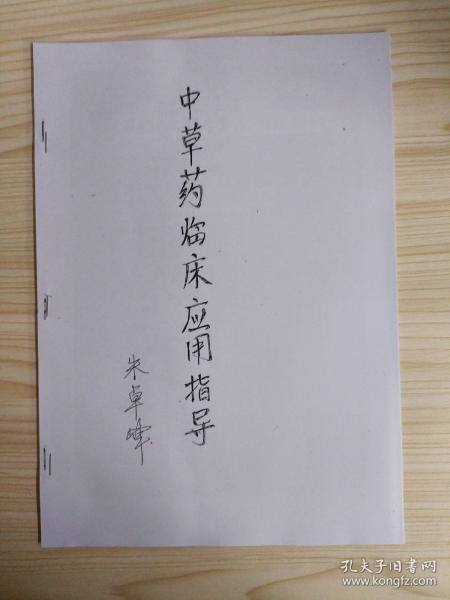 中草药临床应用指导
朱卓峰
孔夫子旧书网
www.kongfz.com